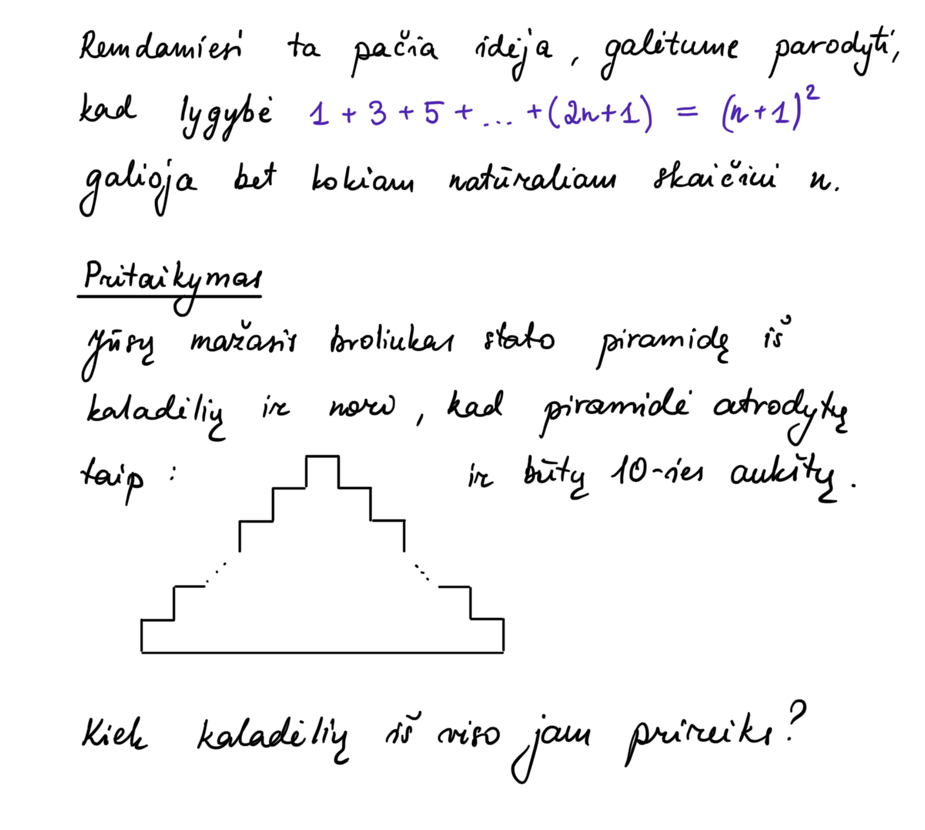 Remdamiesi ta pačia idėja, galėtume parodyti,
kad lygybė 1 + 3 + 5 + ... + (2n+1) = (n+1)²
galioja bet kokiam natūraliam skaičiui n.
Pritaikymas
Jūsų mažasis broliukas stato piramidę iš
kaladėlių ir nori, kad piramidė atrodytų
taip : ir būtų 10-ies aukštų.
Kiek kaladėlių iš viso jam prireiks?